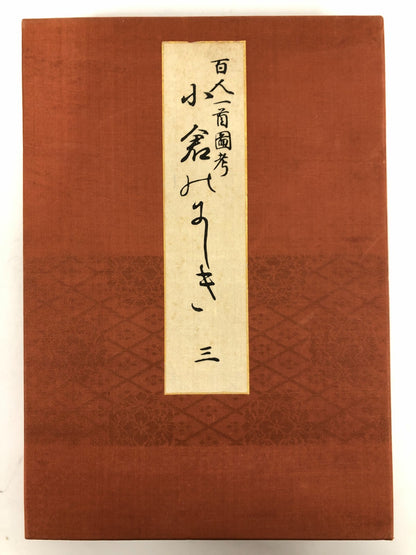 百人一首圖考
小倉のにしき 三